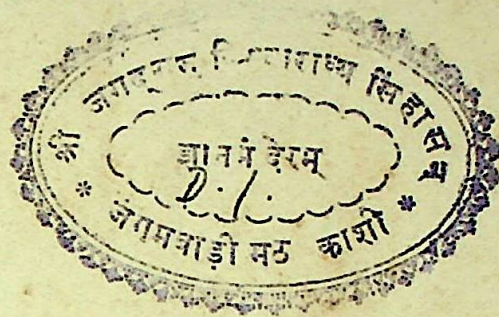 श्री जगद्गुरु विश्वाराध्य सिंहासन
ज्ञानमंदिरम्
D.1.
* जंगमवाड़ी मठ काशी *